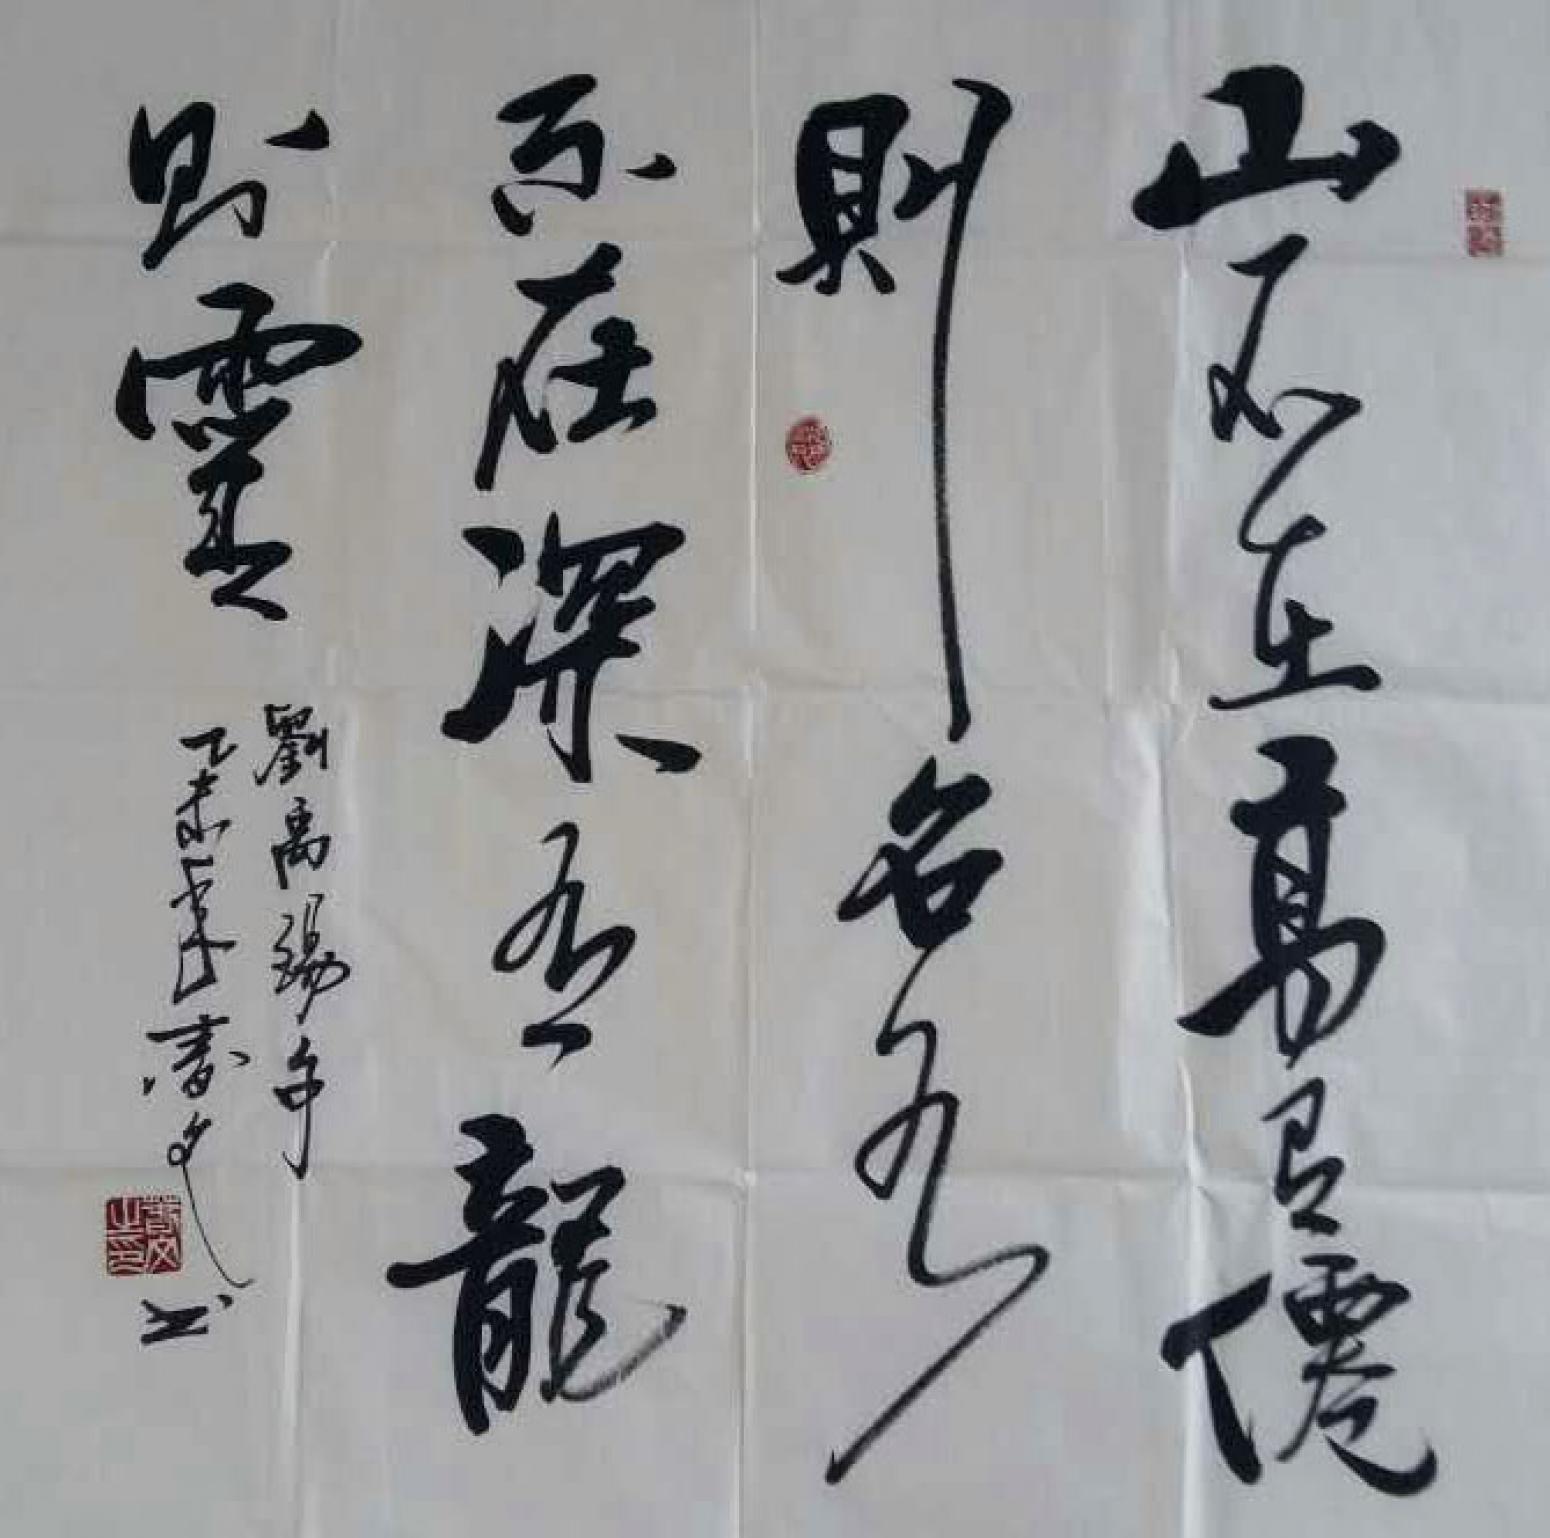 山不在高有僊
則名水
不在深有龍
則靈
劉禹錫
乙未年文书